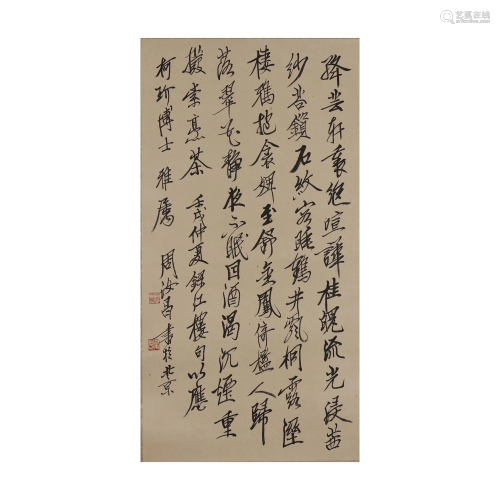 絳芸軒裏絕喧譁桂魄流光浸茜
紗苔鎖石紋容睡鶴井飄桐露溼
棲鴉抱衾婢至舒金鳳倚檻人歸
落翠花靜夜不眠因酒渴沉煙重
撥索烹茶 壬戌仲夏錄紅樓句以應
柯珍博士雅屬 周汝昌書於北京
艺狐在线